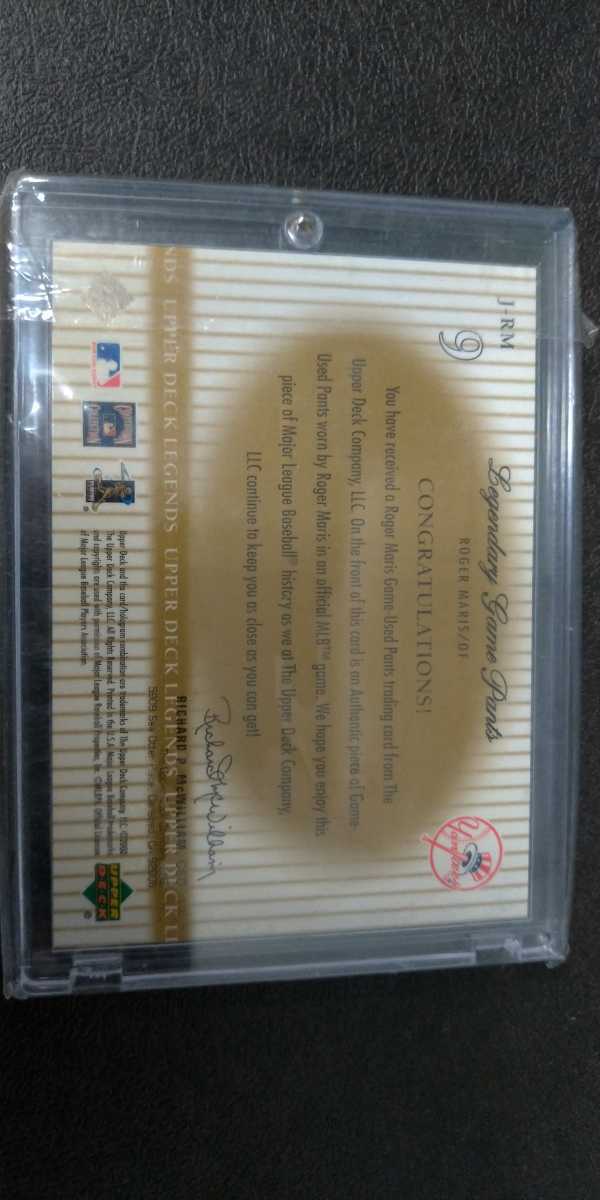 J-RM
9
Legendary Game Pants
ROGER MARIS/OF
Yankees
CONGRATULATIONS!
You have received a Roger Maris Game-Used Pants trading card from The
Upper Deck Company, LLC. On the front of this card is an Authentic piece of Game-
Used Pants worn by Roger Maris in an official MLB™ game. We hope you enjoy this
piece of Major League Baseball® history as we at The Upper Deck Company,
LLC continue to keep you as close as you can get!
Richard P. McWilliam
RICHARD P. McWILLIAM
5909 Sea Otter
NDS UPPER DECK LEGENDS UPPER DECK LEGENDS UPPER DECK LE
Upper Deck and the card/hologram combination are trademarks of The Upper Deck Company, LLC. ©2002
The Upper Deck Company, LLC. All Rights Reserved. Printed in the U.S.A. Major League Baseball
and copyrights are used with permission of Major League Baseball Properties, Inc.
of Major League Baseball Players Association.
UPPER
DECK